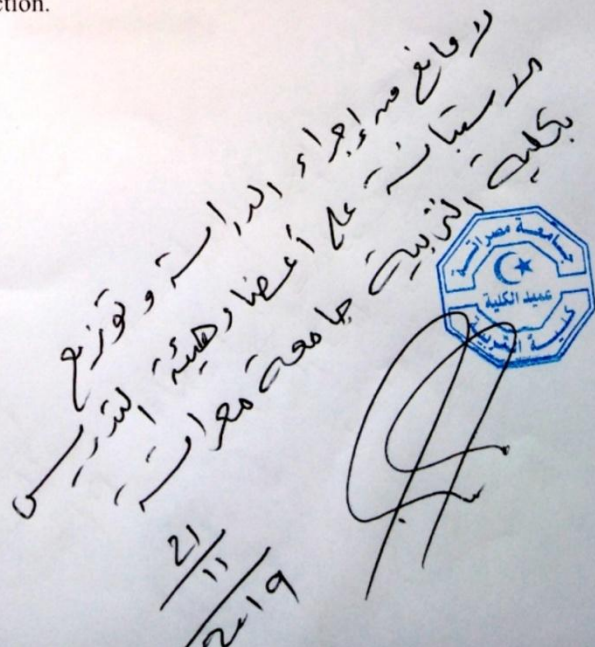 ction.
لا مانع من إجراء الدراسة وتوزيع
الاستبانة على أعضاء هيئة التدريس
بكلية التربية جامعة مصراتة
جامعة مصراتة
عميد الكلية
كلية التربية
21/11/2019